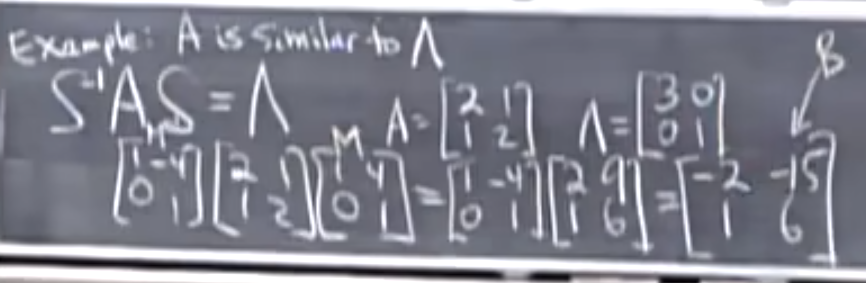 Example: A is similar to Λ
B
S⁻¹AS = Λ A = [2 1; 1 2] Λ = [3 0; 0 1]
M
[1 -4; 0 1] [2 1; 1 2] [1 4; 0 1] = [1 -4; 0 1] [2 9; 1 6] = [-2 -15; 1 6]